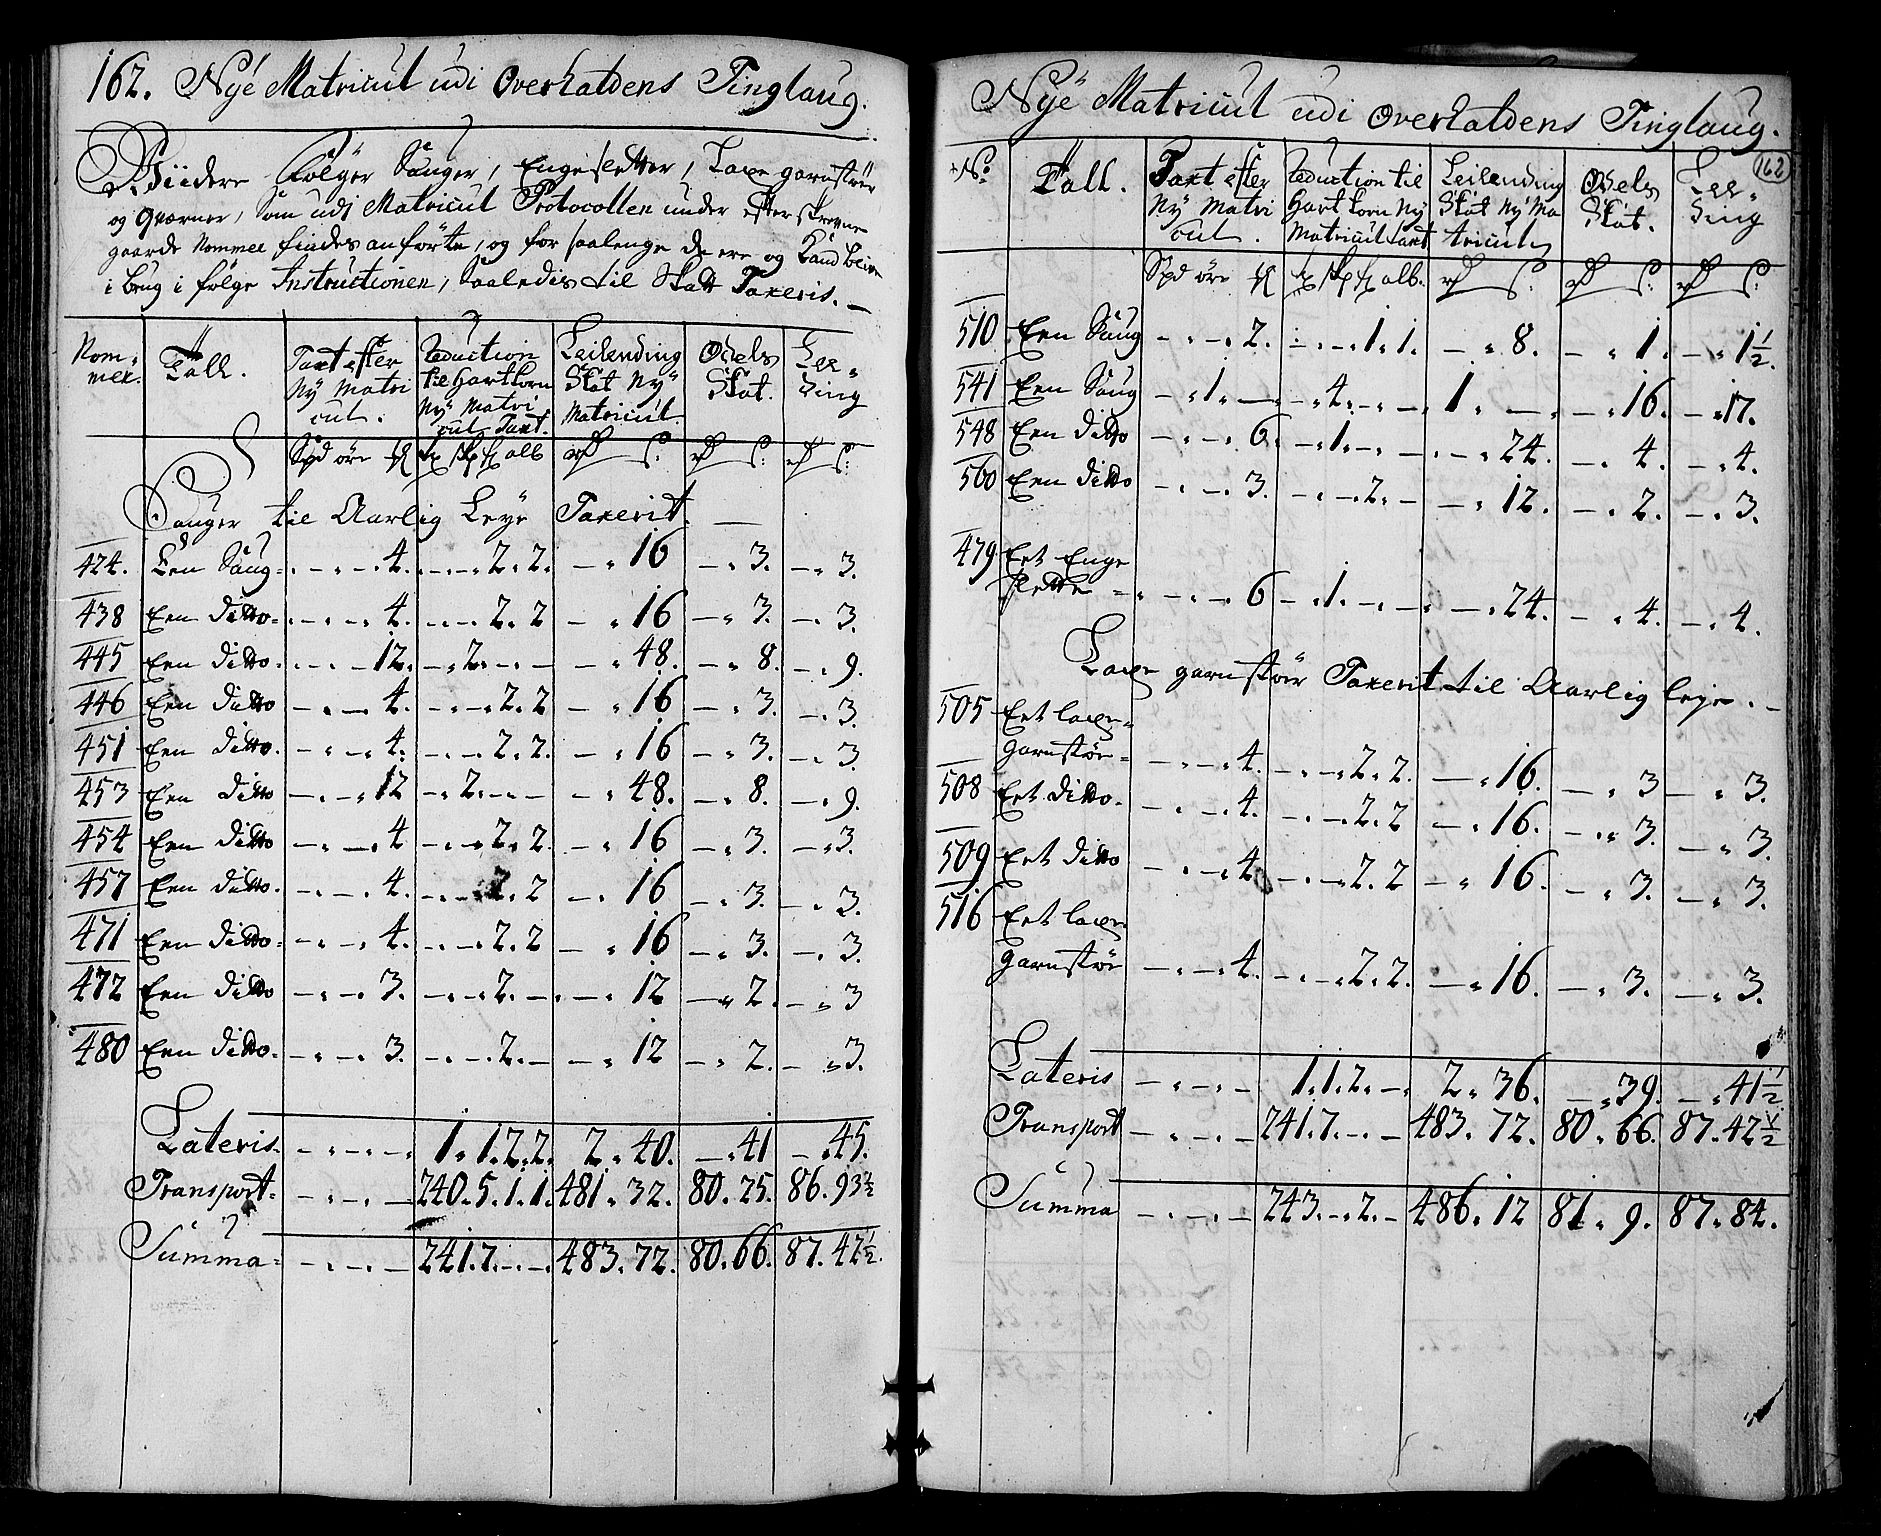 162. Nÿe Matricul udi Overhaldens Tinglaug.
Viidere Følger Sauger, Engesletter, Laxe garnstöer
og Qværner, som udi Matricul Protocollen under efterskrevne
gaarde Nommer findes anförte, og for saalenge de ere og Kand blive
i brug i følge Instructionen, saaledis til Skatt Taxeris. —
Nom-
mer. Tall. Taxt efter Ny Matricul. Reduction til Hartkorn Ny Matricul Taxt. Leilending Skat Ny Matricul. Odels Skat. Leeding
Spd öre # alb rd s: rd s: rd s:
Sauger til Aarlig Leye Taxerit. —
424. Een Saug - . - . - 4. . - . - . 2. 2. - . 16 - . 3. - . 3.
438 Een ditto - . - . - . 4. - . - . 2. 2 - . 16 - . 3. - . 3.
445 Een ditto - . - . - 12. - . 2. - . - - . 48. - . 8. - . 9.
446 Een ditto - . - . 4. - . - . 2. 2 - . 16 - . 3. - . 3.
451 Een ditto - . - . 4. - . - . 2. 2. - . 16 - . 3. - . 3.
453 Een ditto - . - . 12 - . 2. - . - - . 48. - . 8. - . 9.
454 Een ditto - . - . 4 - . - . 2. 2. - . 16 - . 3. - . 3.
457 Een ditto - . - . 4. - . - . 2. 2 - . 16 - . 3. - . 3.
471 Een ditto - . - . 4. - . - . 2. 2 - . 16 - . 3. - . 3.
472 Een ditto - . - . 3. - . - . 2. - . - . 12 - . 2. - . 3
480 Een ditto - . - . 3. - . - . 2. - - . 12 - . 2. - . 3.
Lateris - . - . - . 1. 1. 2. 2. 2. 40. - . 41 - . 45.
Transport - . - . - 240. 5. 1. 1. 481. 32. 80. 25. 86. 93 1/2
Summa - . - . - 241. 7. - . - . 483. 72. 80. 66. 87. 42 1/2.
Nÿe Matricul udi Overhaldens Tinglaug.
162
No. Tall. Taxt efter Ny Matricul. Reduction til Hartkorn Ny Matricul Taxt Leilending Skat Ny Matricul Odels Skat. Leeding
Spd öre # alb. rd s: rd s: rd s:
510 Een Saug - . - . 2. - . - . 1. 1. - . 8. - . 1. - . 1 1/2.
541 Een Saug - . 1. - - . 4. - . - 1. - . - . 16. - . 17.
548 Een ditto - . - . 6. - . 1. - . - . - . 24. - . 4. - . 4.
560 Een ditto - . - . 3. - . - . 2. - - . 12. - . 2. - . 3.
479 Eet Enge
slette - . - . - . 6 - . 1. - . - . - . 24. - . 4. - . 4.
Laxe garnstöer Taxerit til Aarlig leje. -
505 Eet laxe-
garnstöe - . - . 4. - . - . 2. 2. - . 16. - . 3 - . 3.
508 Eet ditto. - . - . 4. - . - . 2. 2 - . 16. - . 3. - . 3.
509 Eet ditto - . - . 4. - . - . 2. 2 - . 16. - . 3. - . 3.
516 Eet laxe
garnstöe - . - . 4. - . - . 2. 2. - . 16. - . 3. - . 3.
Lateris - . - . - 1. 1. 2. - . 2. 36. - . 39. - . 41 1/2
Transport - . - . - 241. 7. - . - 483. 72. 80. 66. 87. 42 1/2
Summa - . - . - 243. - . 2. - 486. 12 81. 9. 87. 84.